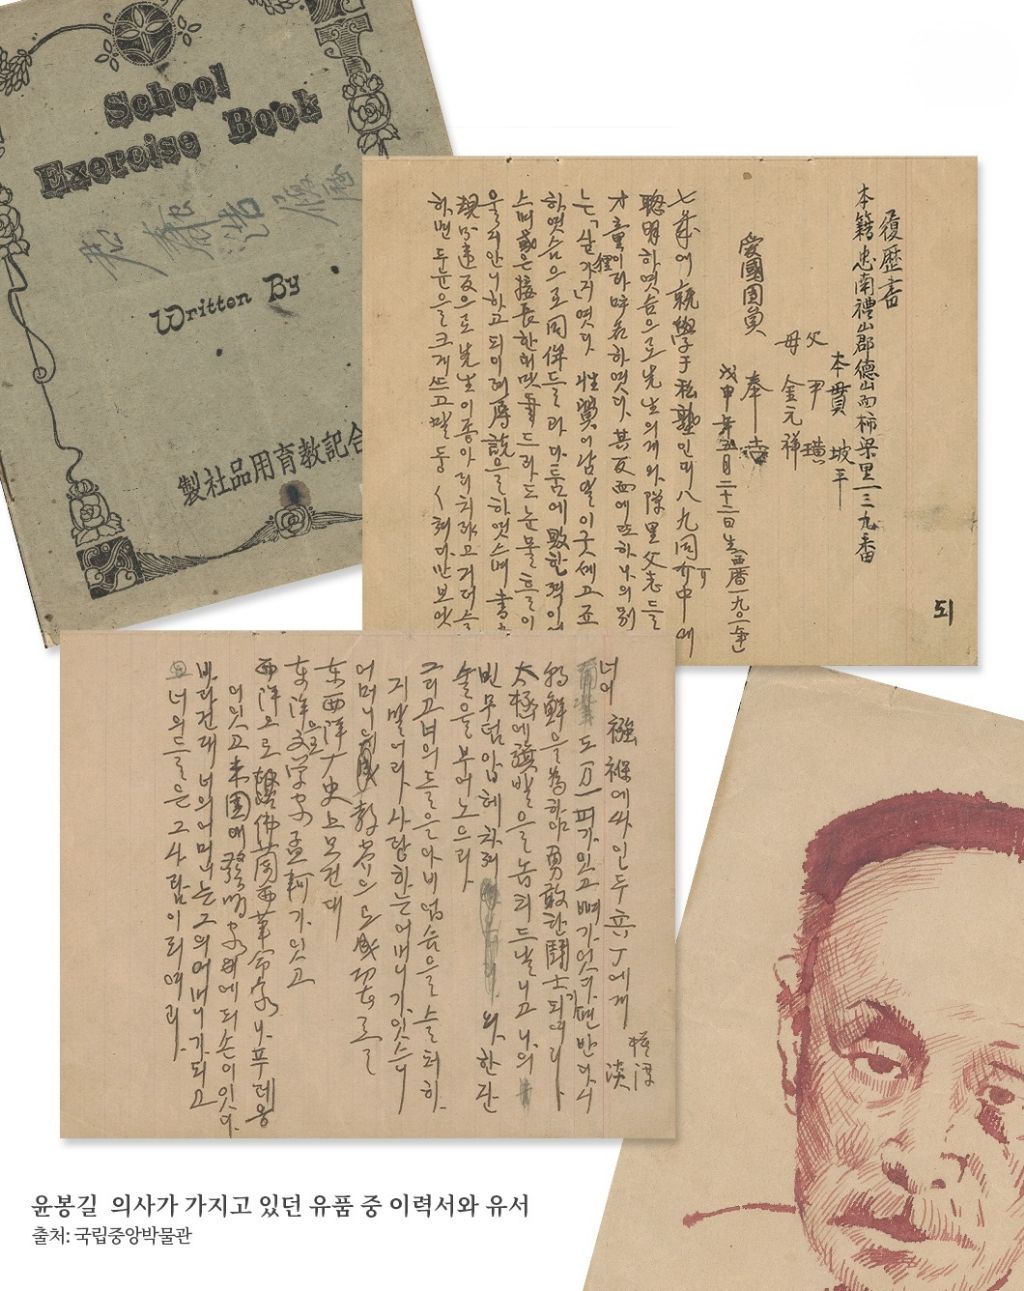 School
Exercise Book
Written By
合記教育用品社製
履歷書
本籍 忠南禮山郡德山面柿梁里一三九番
本貫 坡平
父 尹 璜
母 金元祥
愛國團員 奉吉
戊申年五月二十三日生 西曆一九〇八年
七歲에 就學于私塾인데 八九同介中에
聰明하엿슴으로 先生의게와 隣里父老들
才童이라 呼名하엿다. 其反面에 또 하나의 別
는「살가지狸」엿다. 性質이 남달이 굿세고 죠
하엿슴으로 同伴들과 마툼에 敗한 적이
스며 或은 接長한테 맷 드라도 눈물 흘이
울지 안니하고 되이려 辱說을 하엿스며 書
違反으로 先生이 종아리치랴고 거더
하면 두 눈을 크게 뜨고 말둥
되
너이 襁褓에 싸인 두 兵丁에게
淳
淡
도 만일 피가 잇고 뼈가 잇다면 반다시
朝鮮을 為하야 勇敢한 鬪士되여라
太極에 旗발을 놉피 드날니고 나의
빈 무덤 압헤 차저 와 한 잔
술을 부어노으라
그리고 너의들은 아비 업슴을 슬퍼하
지 말어라 사랑하는 어머니가 잇스니
어머니의 敎養으로 成功
东西洋 史上 보건대
东洋으로 文学家 孟軻가 잇고
西洋으로 佛蘭西革命家 나푸레옹
이 잇고 米国에 發明家 에디손이 잇다.
바라건대 너의 어머니는 그의 어머니가 되고
너의들은 그 사람이 되여라.
윤봉길 의사가 가지고 있던 유품 중 이력서와 유서
출처: 국립중앙박물관